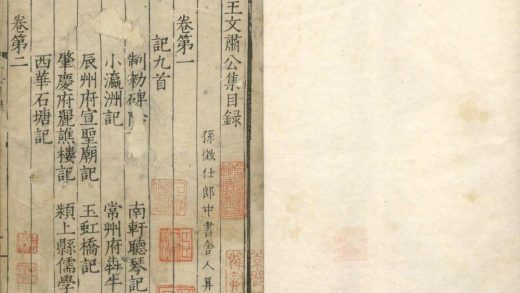 王文肅公集目錄
孫徵仕郎中書舍人昇
卷第一
記九首
制勑碑 南軒聽琴記
小瀛洲記 常州府犇牛
辰州府宣聖廟記 玉虹橋記
肇慶府麗譙樓記 潁上縣儒學
西華石塘記
卷第二